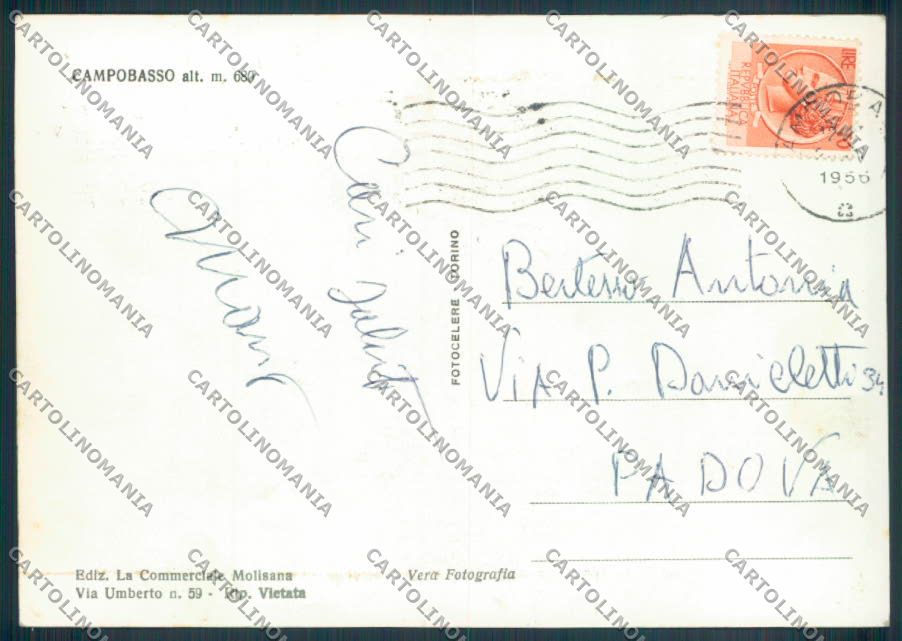 CAMPOBASSO alt. m. 680
Cari saluti
LIRE
REPVBBLICA
ITALIANA
1956
FOTOCELERE TORINO
Antonia
Via P. Danieletti 34
PADOVA
Ediz. La Commerciale Molisana
Via Umberto n. 59 - Rip. Vietata
Vera Fotografia
CARTOLINOMANIA